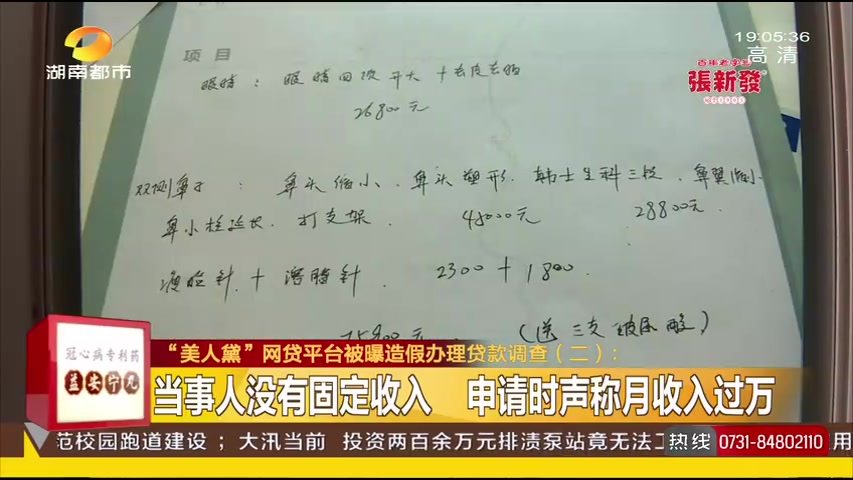 19:05:36
高清
湖南都市
百年老字号
張新發
项目
眼睛：眼睛四项开大＋去皮去脂
26800元
鼻头缩小、鼻头塑形、韩士生科三段、鼻翼缩小
鼻小柱延长、打支架 48000元 28800元
瘦脸针＋溶脂针 2300＋1800
（送三支玻尿酸）
冠心病专利药
益安宁丸
“美人黛”网贷平台被曝造假办理贷款调查（二）：
当事人没有固定收入 申请时声称月收入过万
范校园跑道建设；大汛当前 投资两百余万元排渍泵站竟无法工
热线 0731-84802110
用